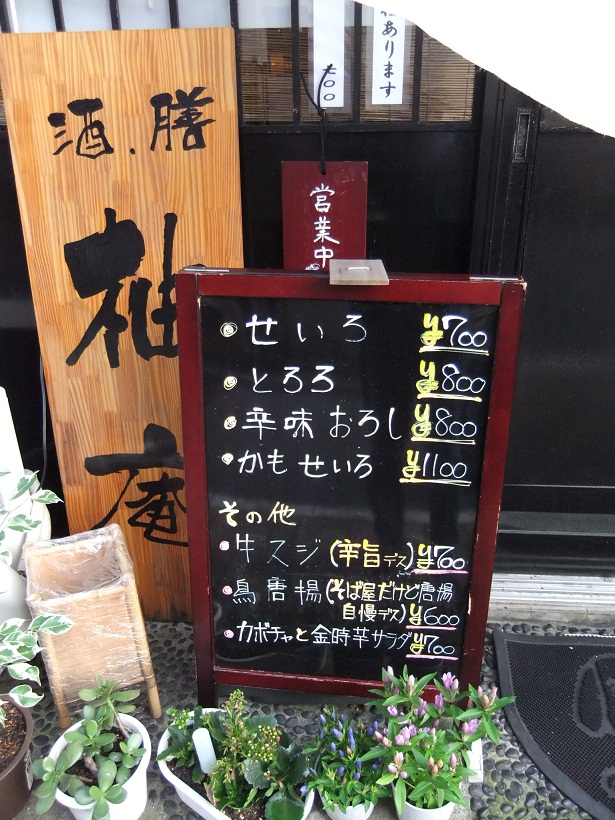 あります
酒、膳
柚庵
営業中
せいろ ¥700
とろろ ¥800
辛味おろし ¥800
かもせいろ ¥1100
その他
牛スジ(辛旨デス) ¥700
鳥唐揚(そば屋だけど唐揚
自慢デス) ¥600
カボチャと金時芋サラダ ¥700